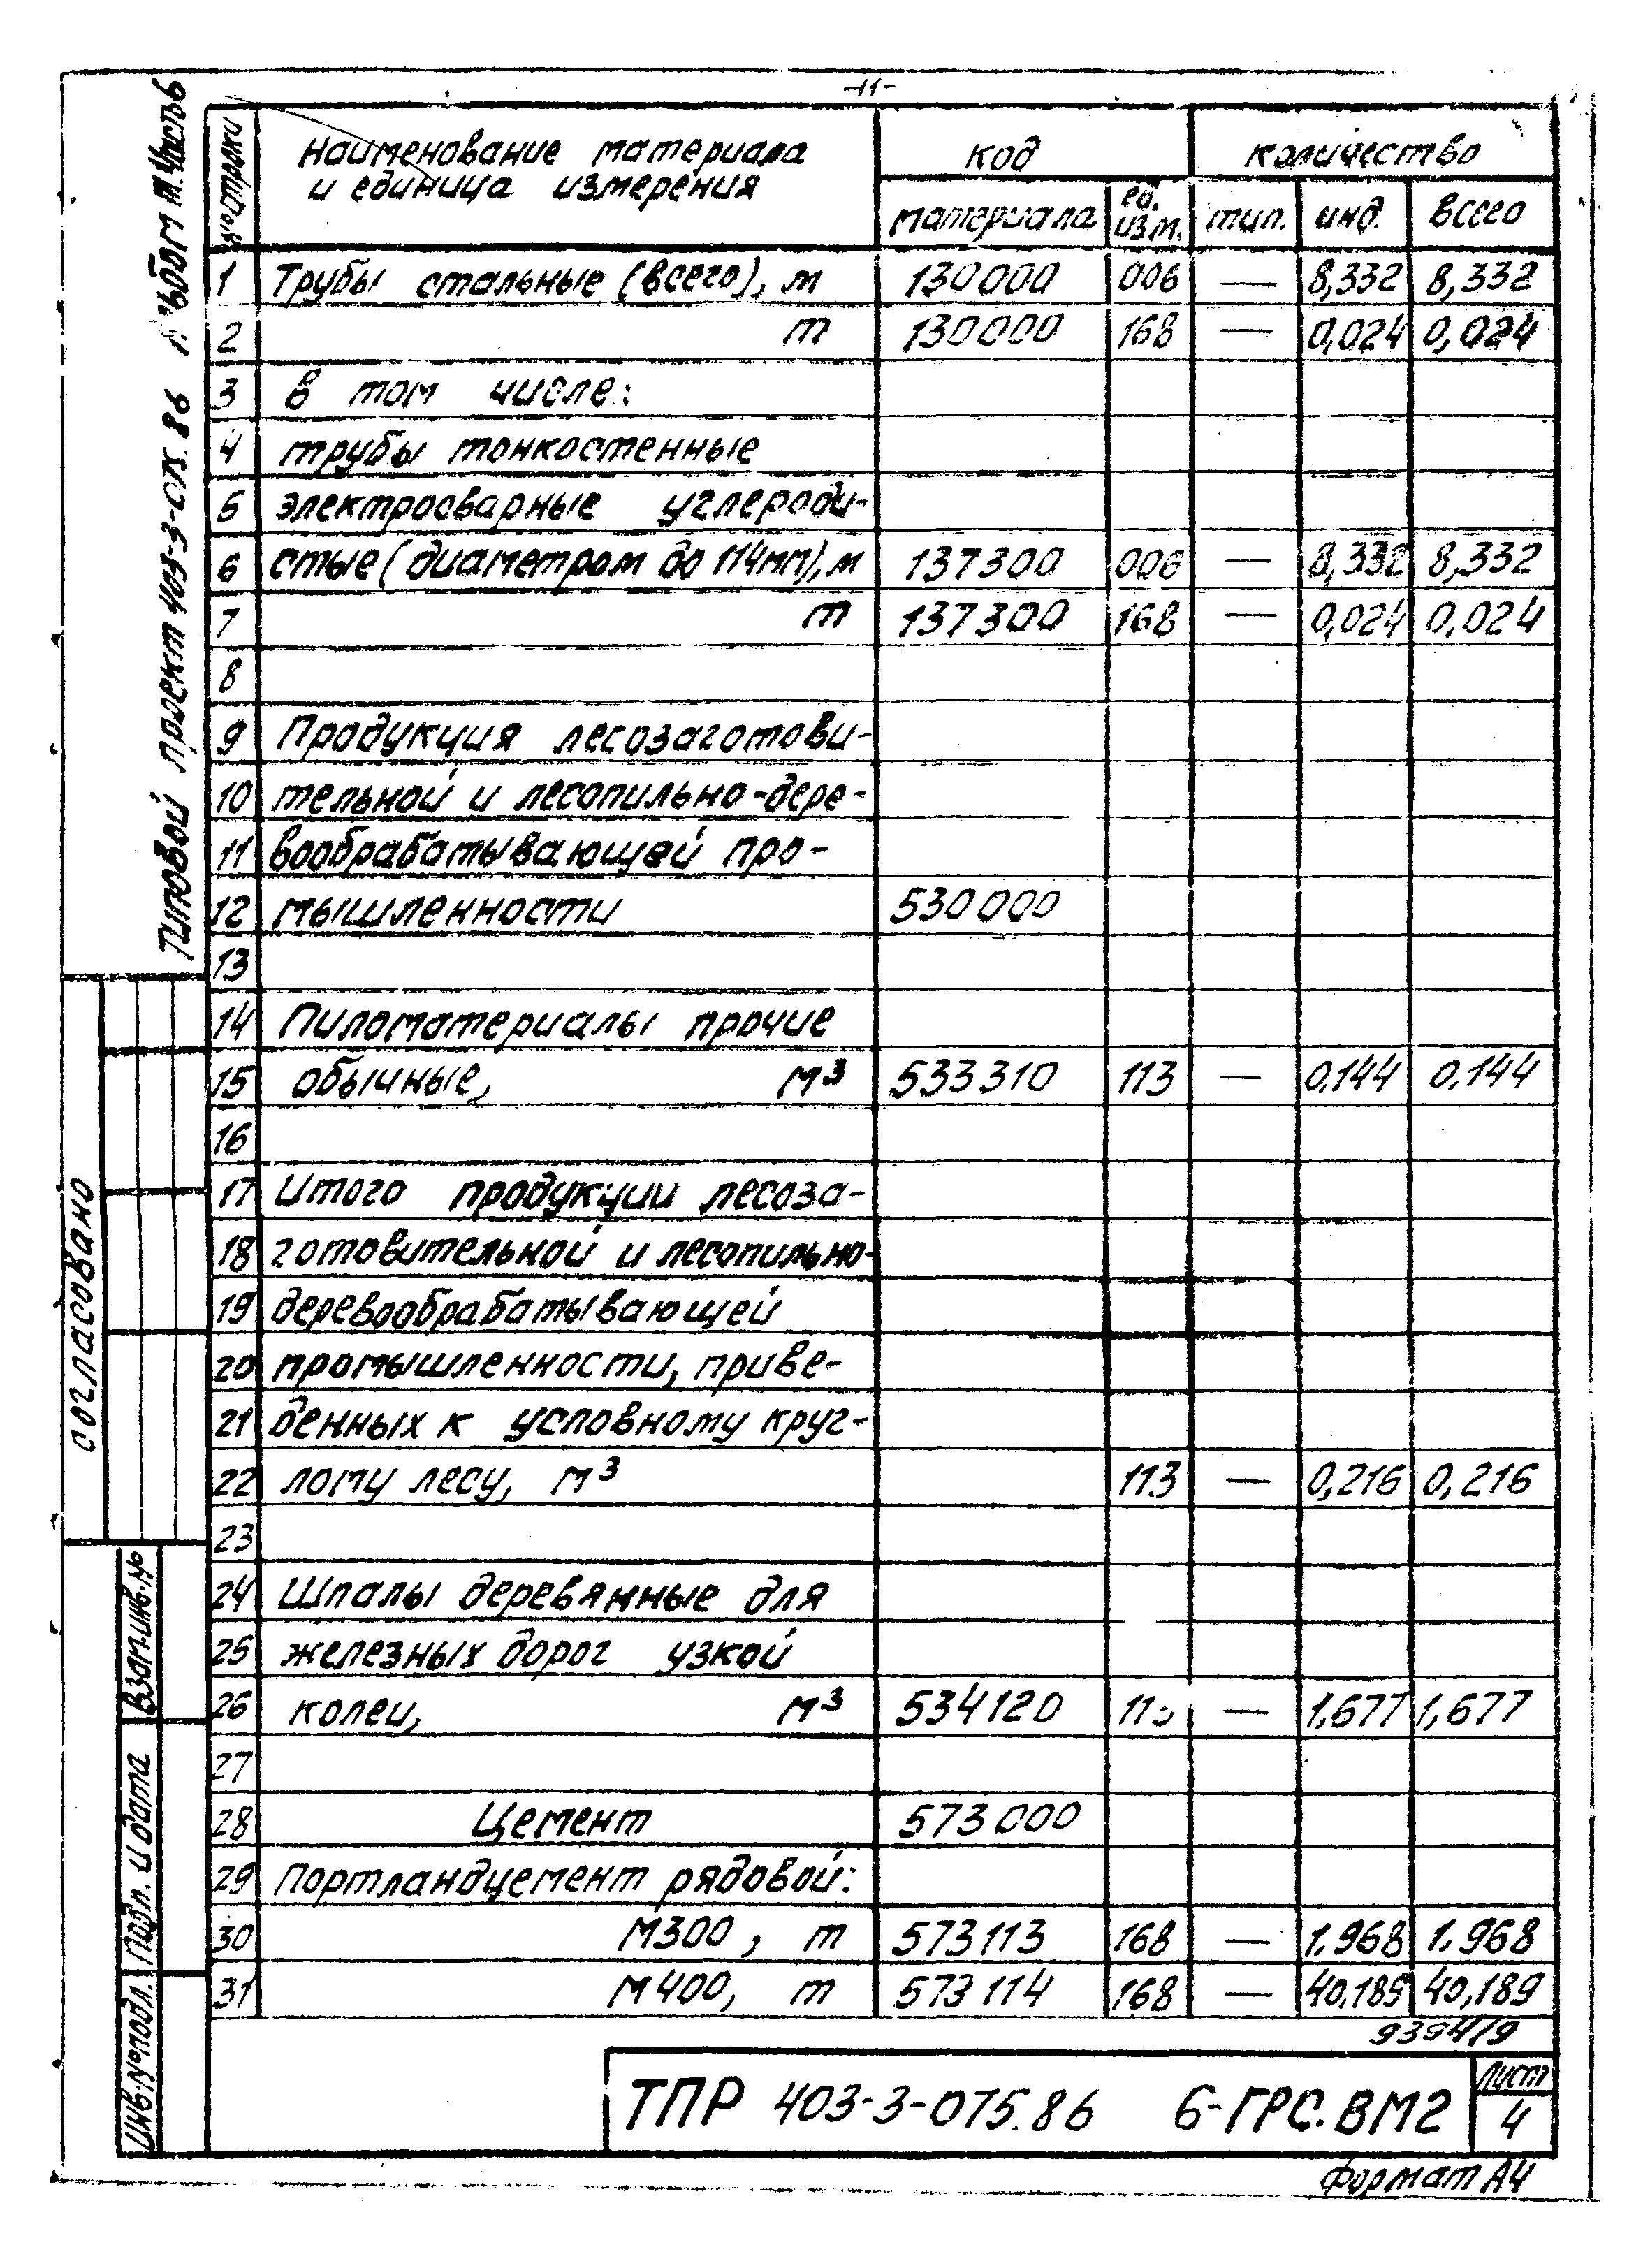 -11-
Типовой проект 403-3-075.86 Альбом III. Часть 6
№ строки
Наименование материала
и единица измерения
код
количество
материала
ед.
изм.
тип.
инд.
всего
1 Трубы стальные (всего), м 130000 006 — 8,332 8,332
2 т 130000 168 — 0,024 0,024
3 в том числе:
4 трубы тонкостенные
5 электросварные углероди-
6 стые (диаметром до 114мм), м 137300 006 — 8,332 8,332
7 т 137300 168 — 0,024 0,024
8
9 Продукция лесозаготови-
10 тельной и лесопильно-дере-
11 вообрабатывающей про-
12 мышленности 530000
13
14 Пиломатериалы прочие
15 обычные, м³ 533310 113 — 0,144 0,144
16
17 Итого продукции лесоза-
18 готовительной и лесопильно-
19 деревообрабатывающей
20 промышленности, приве-
21 денных к условному круг-
22 лому лесу, м³ 113 — 0,216 0,216
23
24 Шпалы деревянные для
25 железных дорог узкой
26 колеи, м³ 534120 113 — 1,677 1,677
27
28 Цемент 573000
29 Портландцемент рядовой:
30 М300, т 573113 168 — 1,968 1,968
31 М400, т 573114 168 — 40,189 40,189
9394/9
согласовано
Взам.инв.№
Подп. и дата
Инв.№подл.
ТПР 403-3-075.86 6-ГРС.ВМ2
Лист
4
Формат А4